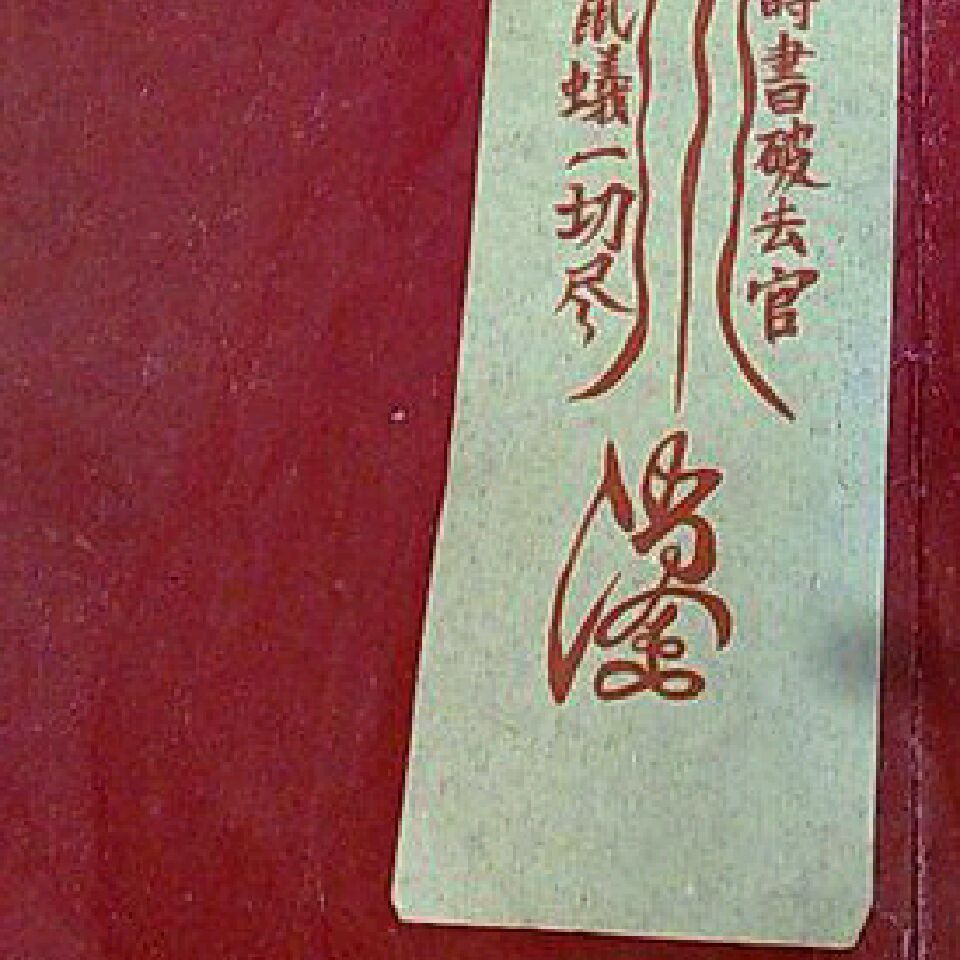 時書破去官
鼠蟻一切尽